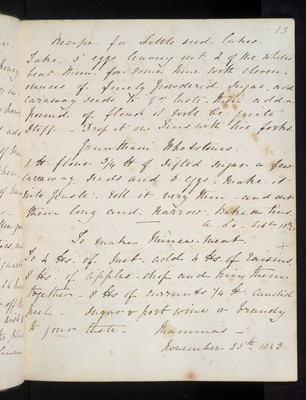 13
Recipe for Little seed Cakes.
Take 5 eggs leaving out 2 of the whites
beat them for some time with eleven
ounces of finely powdered sugar, add
caraway seeds to yr taste. then add a
pound of flour it will be quite
stiff - Drop it on Tins with two forks.
Grantham Whetstones.
1 lb flour 3/4 lb of sifted sugar a few
caraway seeds and eggs. make it
into paste. roll it very thin and cut
them long and narrow. bake on tins
To make Mince Meat.
To 4 lbs. of Suet add 4 lbs. of Raisins
8 lbs. of apples. chop and mix them
together - 8 lbs of currants 1/4 lb. Candied
peel - sugar & port wine or brandy
to your taste. Mamma's -
November 25th 1843